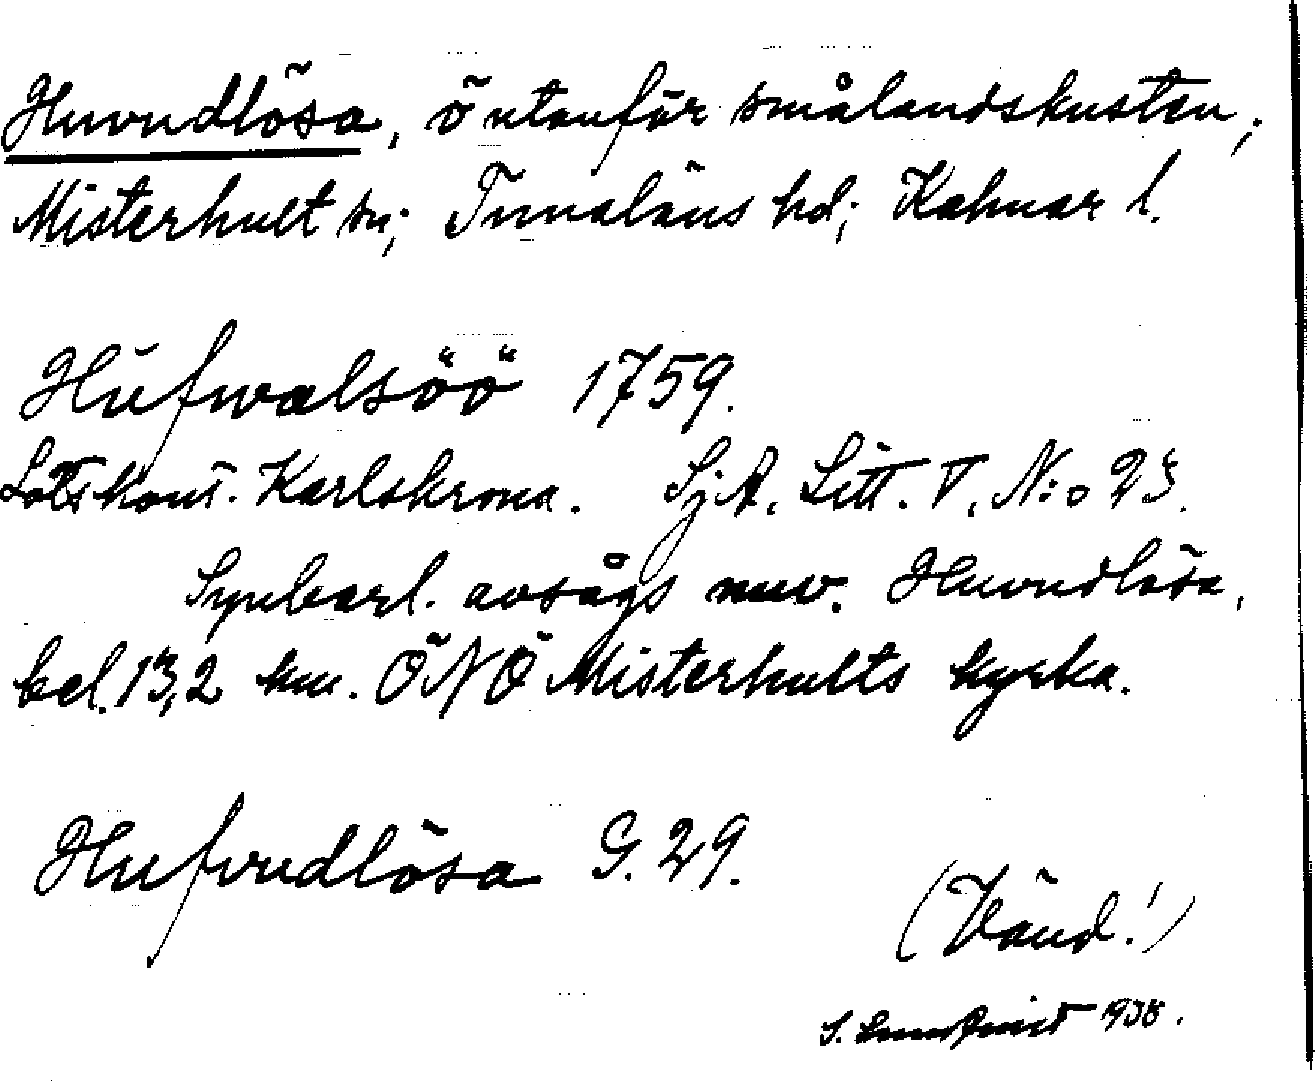 Huvudlösa, ö utanför smålandskusten;
Misterhult sn; Tunaläns hd; Kalmar l.
Hufwalsöö 1759.
Lotskont. Karlskrona. SjA. Litt. V. N:o 23.
Synbarl. avsågs nuv. Huvudlösa,
bel. 13,2 km. ÖNÖ Misterhults kyrka.
Hufvudlösa G. 29.
(Vänd!)
S. 1938.